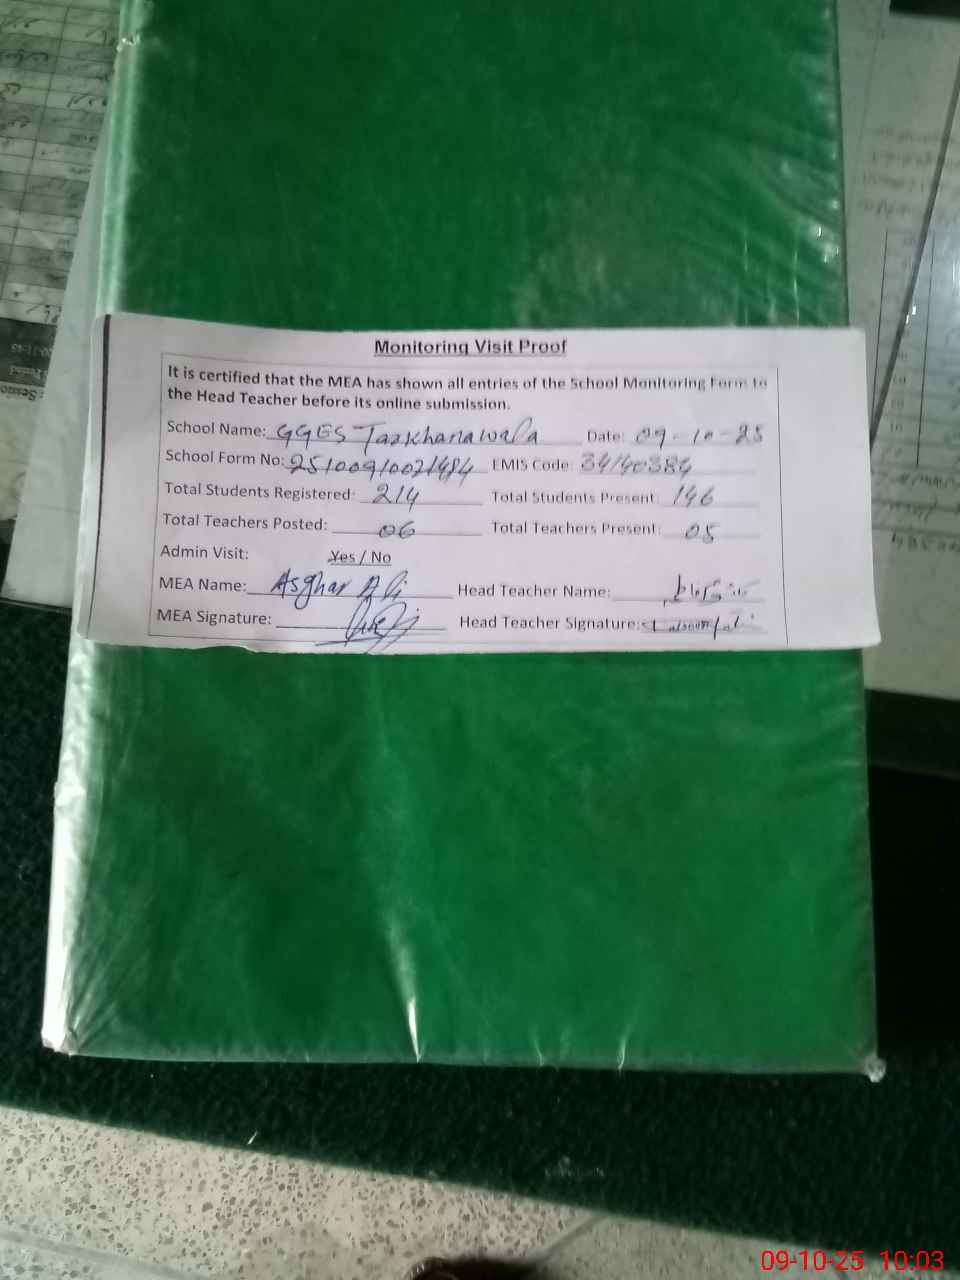 Monitoring Visit Proof
It is certified that the MEA has shown all entries of the School Monitoring Form to
the Head Teacher before its online submission.
School Name: GGES Tarkhanawala Date: 09-10-25
School Form No: 25100910021484 EMIS Code: 34140384
Total Students Registered: 214 Total Students Present: 146
Total Teachers Posted: 06 Total Teachers Present: 05
Admin Visit: Yes / No
MEA Name: Asghar Ali Head Teacher Name:
MEA Signature: Head Teacher Signature:
09-10-25 10:03